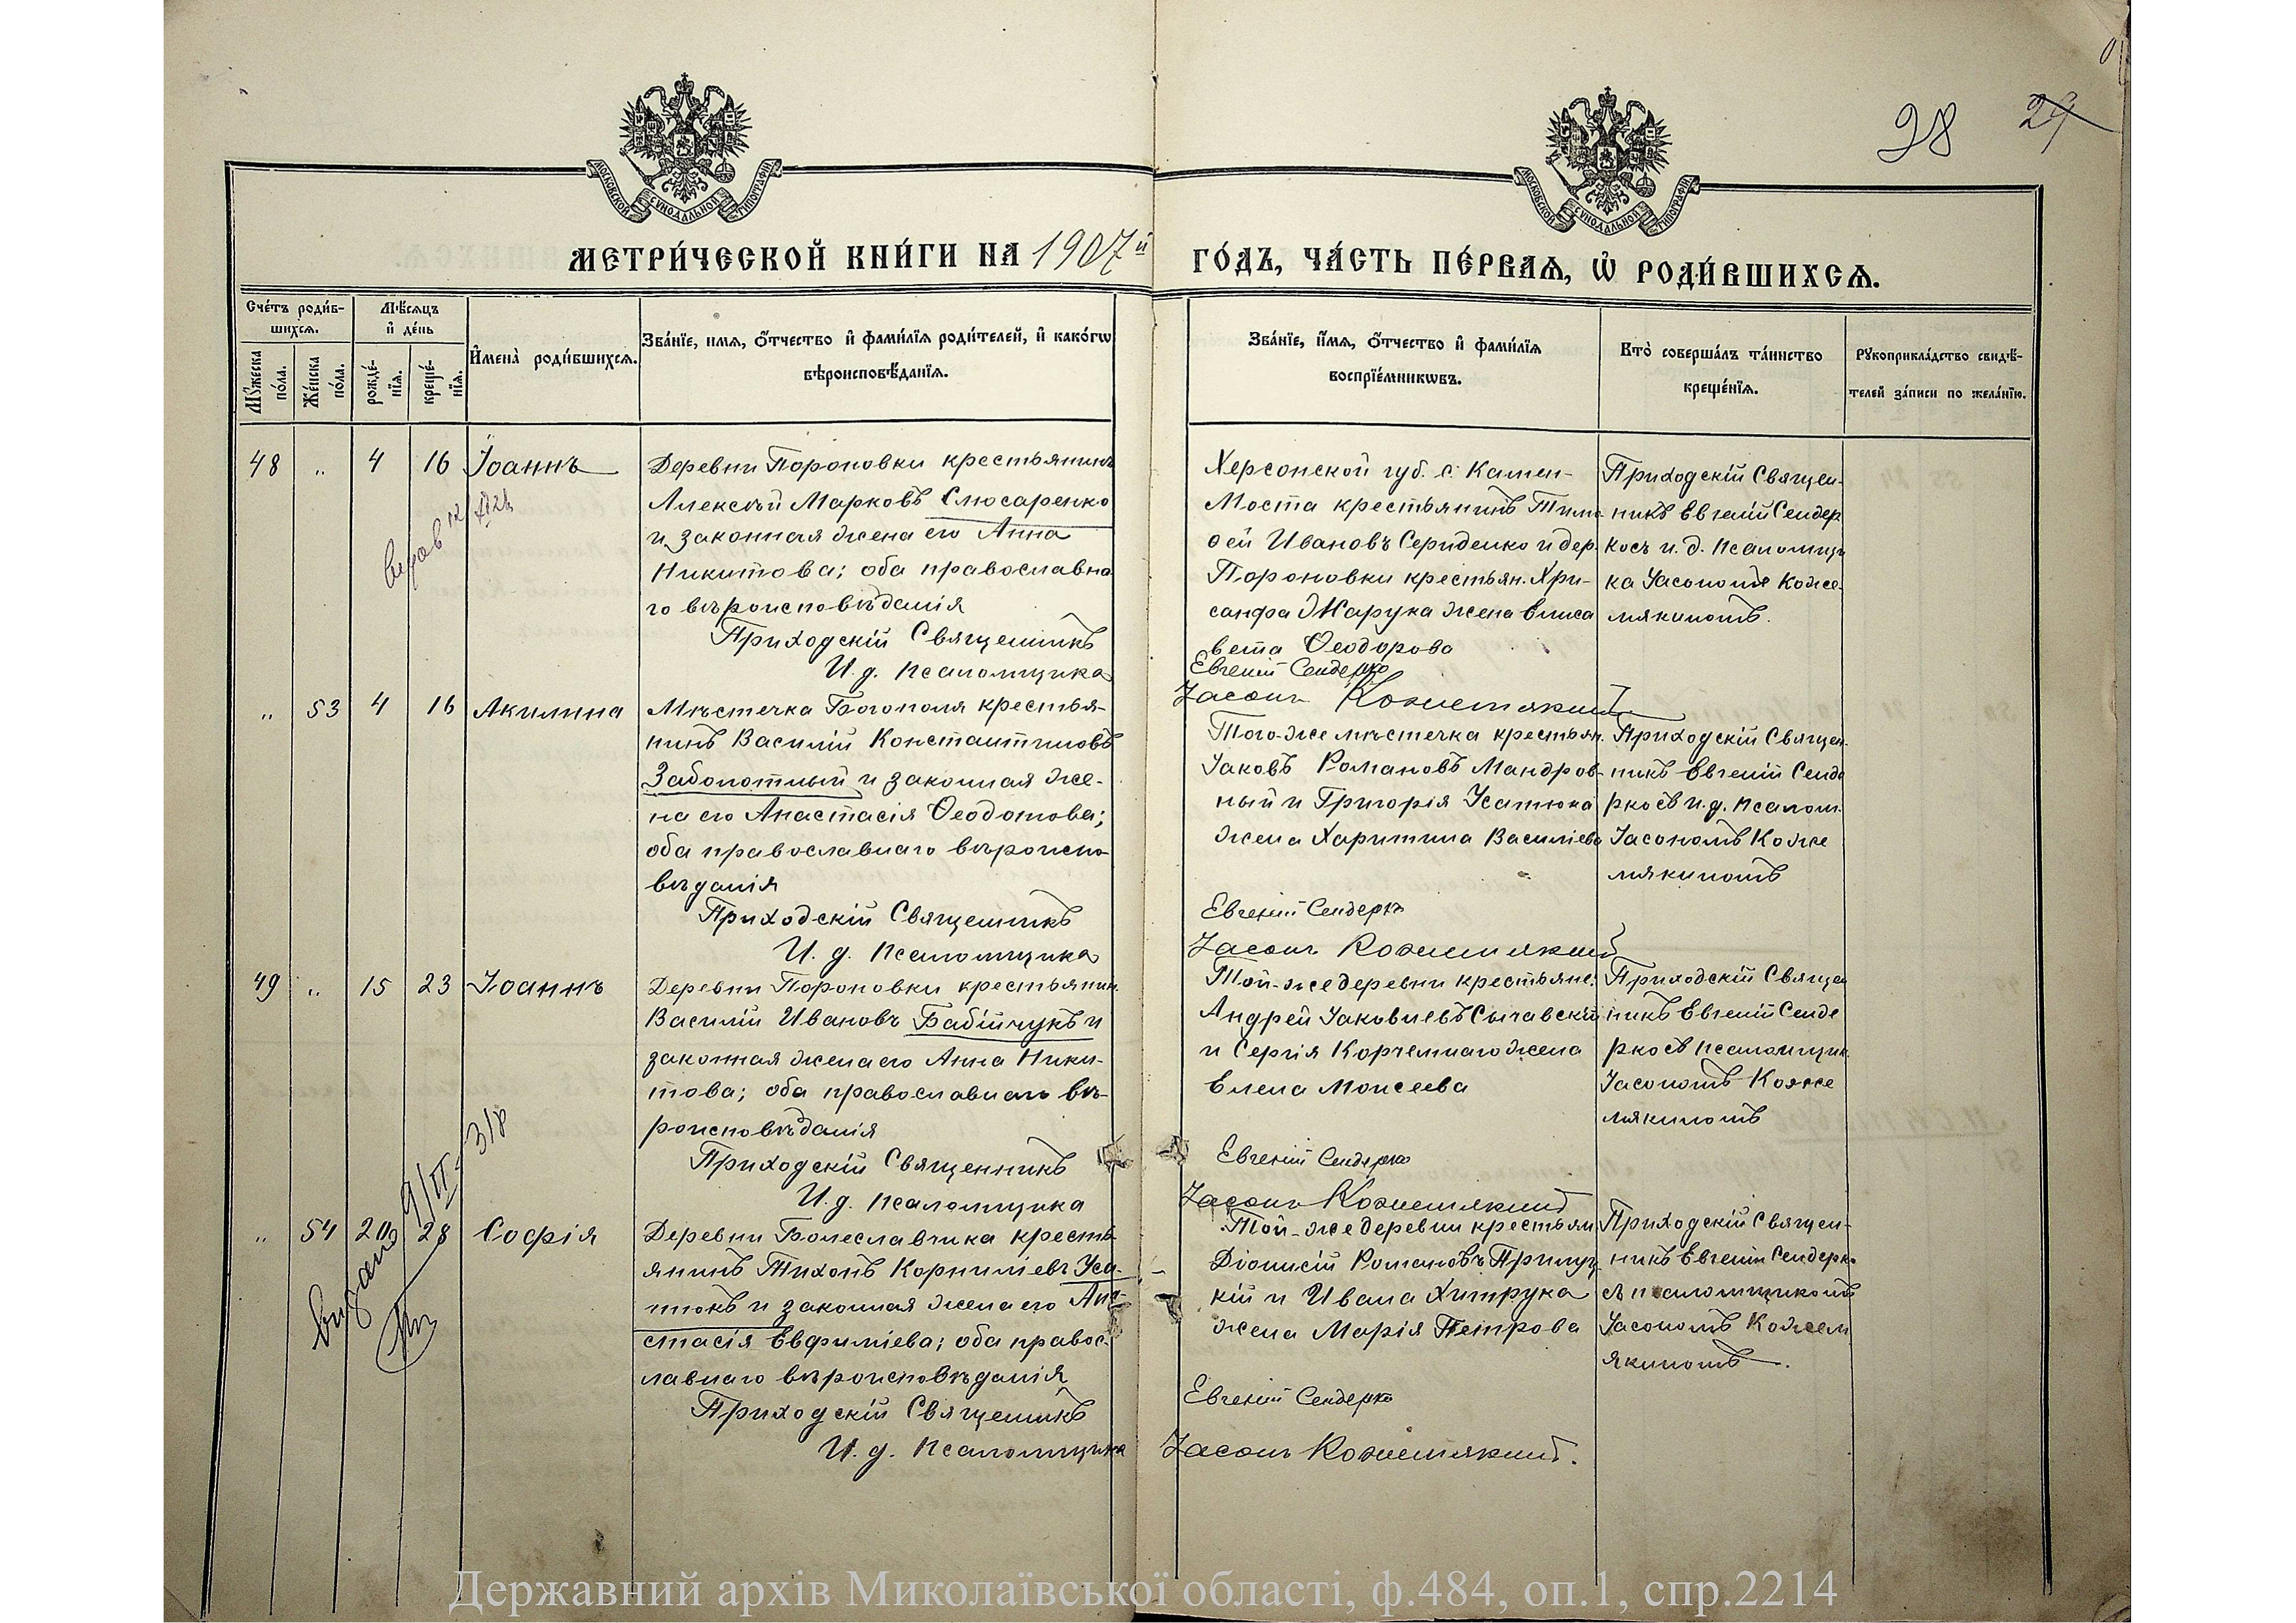 28 29
МОСКОВСКОЙ СѴНОДАЛЬНОЙ ТИПОГРАФІИ
МОСКОВСКОЙ СѴНОДАЛЬНОЙ ТИПОГРАФІИ
МЕТРИ́ЧЕСКОЙ КНИ́ГИ НА 1907й ГО́ДЪ, ЧА́СТЬ ПЕ́РВАѦ, Ѡ҆ РОДИ́ВШИХСѦ.
Сче́тъ роди́в-
шихсѧ.
Мѣ́сѧцъ
и҆ де́нь
Мꙋ́жеска по́ла.
Же́нска по́ла.
рожде́-
нїѧ.
креще́-
нїѧ.
И҆мена̀ роди́вшихсѧ.
Зва́нїе, и҆́мѧ, ѻ҆́тчество и҆ фами́лїѧ роди́телей, и҆ како́гѡ
вѣроисповѣ́данїѧ.
Зва́нїе, и҆́мѧ, ѻ҆́тчество и҆ фами́лїѧ
воспрїе́мникѡвъ.
Кто̀ соверша́лъ та́инство
креще́нїѧ.
Рꙋкоприкла́дство свидѣ́-
телей за́писи по жела́нїю.
48 „ 4 16 Іоаннъ
Деревни Пороновки крестьянинъ
Алексѣй Марковъ Слюсаренко
и законная жена его Анна
Никитова; оба православна
го вѣроисповѣданія
Приходскій Священникъ
И. д. Псаломщика
Херсонской губ. с. Камен-
Моста крестьянинъ Тимо
ѳей Ивановъ Сериденко и дер.
Пороновки крестьян. Хри-
санфа Жарука жена Елиса
вета Ѳеодорова
Евгеній Сендерко
Іасонъ Кожемякинъ
Приходскій Священ-
никъ Евгеній Сендер
косъ и. д. псаломщи
ка Іасономъ Коже-
мякиномъ.
„ 53 4 16 Акилина
Мѣстечка Богополя крестья-
нинъ Василій Константиновъ
Заболотный и законная же-
на его Анастасія Ѳеодотова;
оба православнаго вѣроиспо
вѣданія
Приходскій Священникъ
И. д. Псаломщика
Того-же мѣстечка крестьян.
Іаковъ Романовъ Мандров-
ный и Григорія Усатюка
жена Харитина Василіева
Евгеній Сендерко
Іасонъ Кожемякинъ
Приходскій Священ-
никъ Евгеній Сенде
рко съ и. д. псалом.
Іасономъ Коже
мякиномъ
49 „ 15 23 Іоаннъ
Деревни Пороновки крестьянин.
Василій Ивановъ Бабійчукъ и
законная жена его Анна Ники-
това; оба православнаго вѣ-
роисповѣданія
Приходскій Священникъ
И. д. псаломщика
Той-же деревни крестьяне:
Андрей Іаковлевъ Сычавскій
и Сергія Корчемнаго жена
Елена Моисеева
Евгеній Сендерко
Іасонъ Кожемякинъ
Приходскій Священ
никъ Евгеній Сенде
рко съ псаломщик.
Іасономъ Коже
мякиномъ
„ 54 20 28 Софія
Деревни Болеславчика кресть
янинъ Тихонъ Корниліевъ Уса-
тюкъ и законная жена его Ана-
стасія Евфиміева; оба правос-
лавнаго вѣроисповѣданія
Приходскій Священникъ
И. д. Псаломщика
Той-же деревни крестьян
Діонисій Романовъ Прилуц
кій и Ивана Хитрука
жена Марія Петрова
Евгеній Сендерко
Іасонъ Кожемякинъ.
Приходскій Священ-
никъ Евгеній Сендерко
съ псаломщикомъ
Іасономъ Кожем
якиномъ.
Державний архів Миколаївської області, ф.484, оп.1, спр.2214